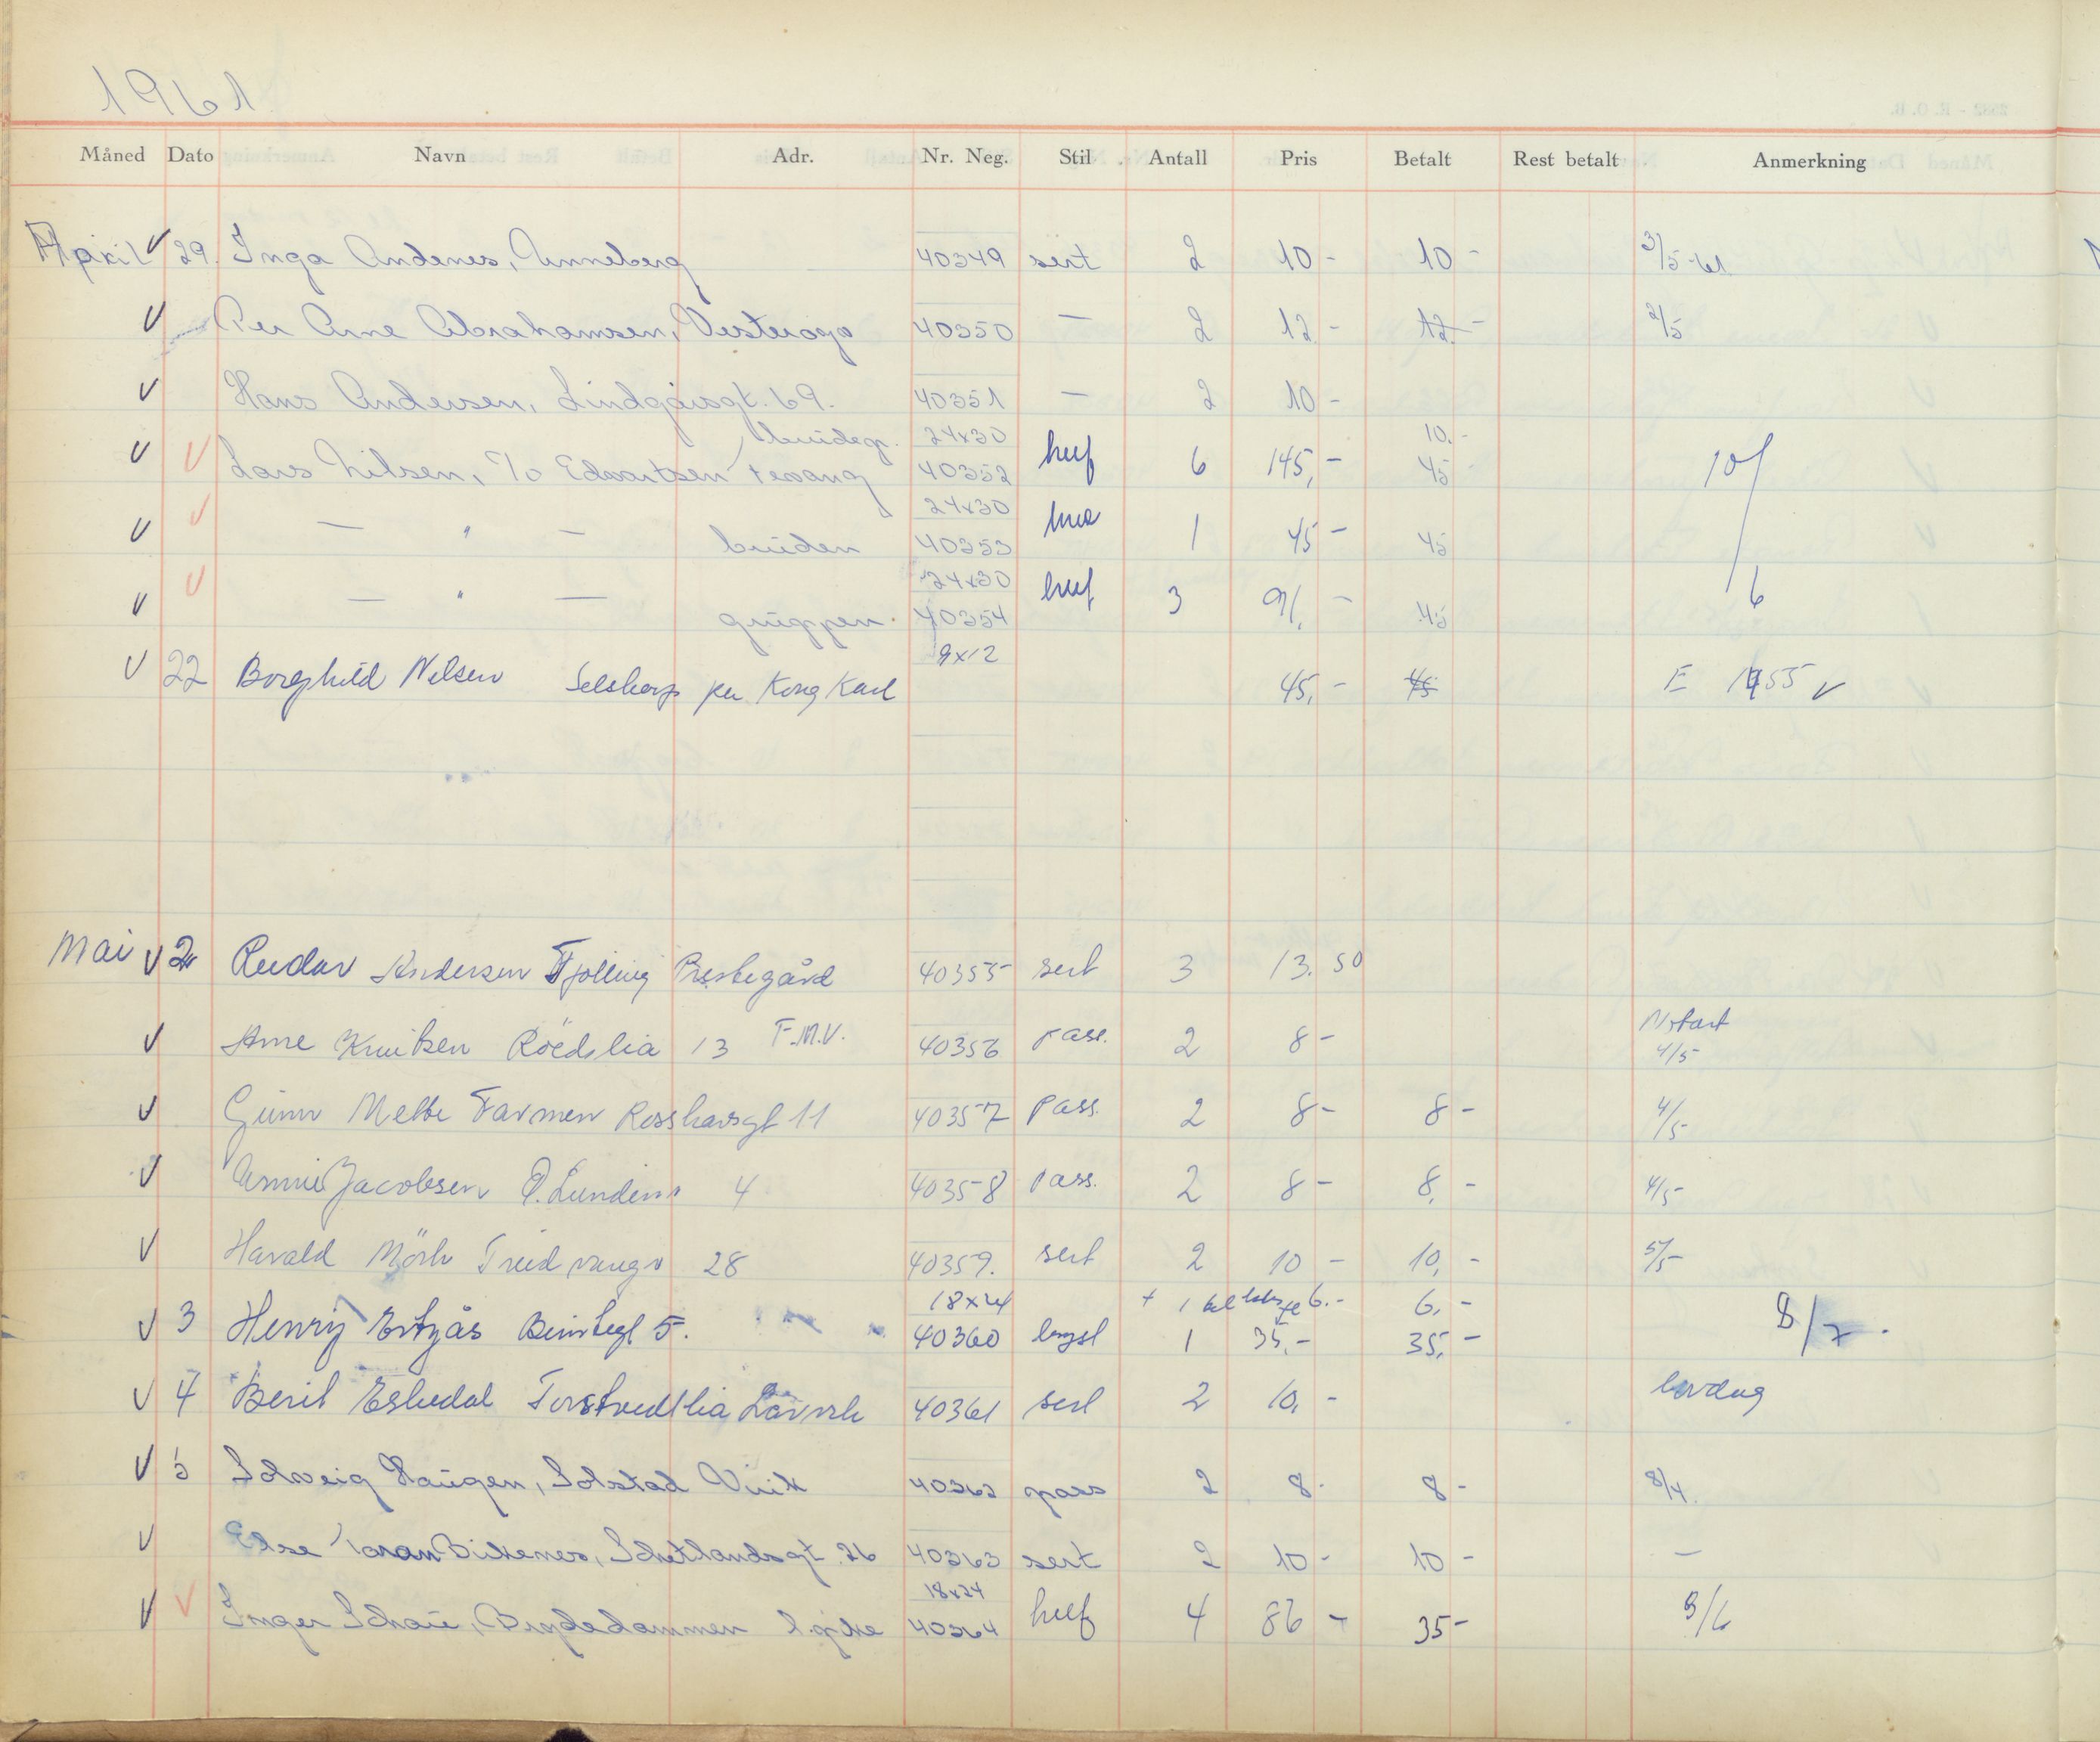 1961
Måned Dato Navn Adr. Nr. Neg. Stil Antall Pris Betalt Rest betalt Anmerkning
April V 29. Inga Andenes, Anneberg 40349 sert 2 10 - 10 - 3/5 kl
V Per Arne Abrahamsen, Vesterøya 40350 — 2 12 - 12 - 2/5
V Hans Andersen, Lindgårsgt. 69. 40351 — 2 10 -
brudegr. 24x30 10.-
V V Lars Nilsen, c/o Edvartsen Tevang 40352 huf 6 145,- 45 10/6
24x30
V V — " — bruden 40353 1 45 - 45
24x30
V V — " — gruppen. 40354 huf 3 91,- 45
9x12
V 22 Borghild Nilsen Selskap per Kong Karl 45,- 45 E 1455 V
Mai V 2 Reidar Andersen Tjølling Prestegård 40355 sert 3 13.50
V Arne Knutsen Röedslia 13 F.M.V. 40356 Pass. 2 8 - Notat 4/5
V Gunn Mette Farmen Rosshavsgt 11 40357 Pass. 2 8 - 8 - 4/5
V Jacobsen P. Lundens 4 40358 Pass. 2 8 - 8,- 4/5
V Harald Mörk Tridvangv 28 40359. sert 2 10 - 10,- 5/5
18x24 + 1 6.- 6,-
V 3 Henry 5. 40360 1 35,- 35,- 8/7.
V 4 Berit Eskedal Torstvedtlia Larvik 40361 sert 2 10,- lørdag
V 5 Solveig Haugen, Solstad Viik 40362 pass 2 8 - 8 - 8/4.
V Else Birkenes, Schetlandsgt. 26 40363 sert 2 10 - 10 - —
18x24
V V Inger Schau, Bugdedammen 40364 huf 4 86 - 35 - 3/6